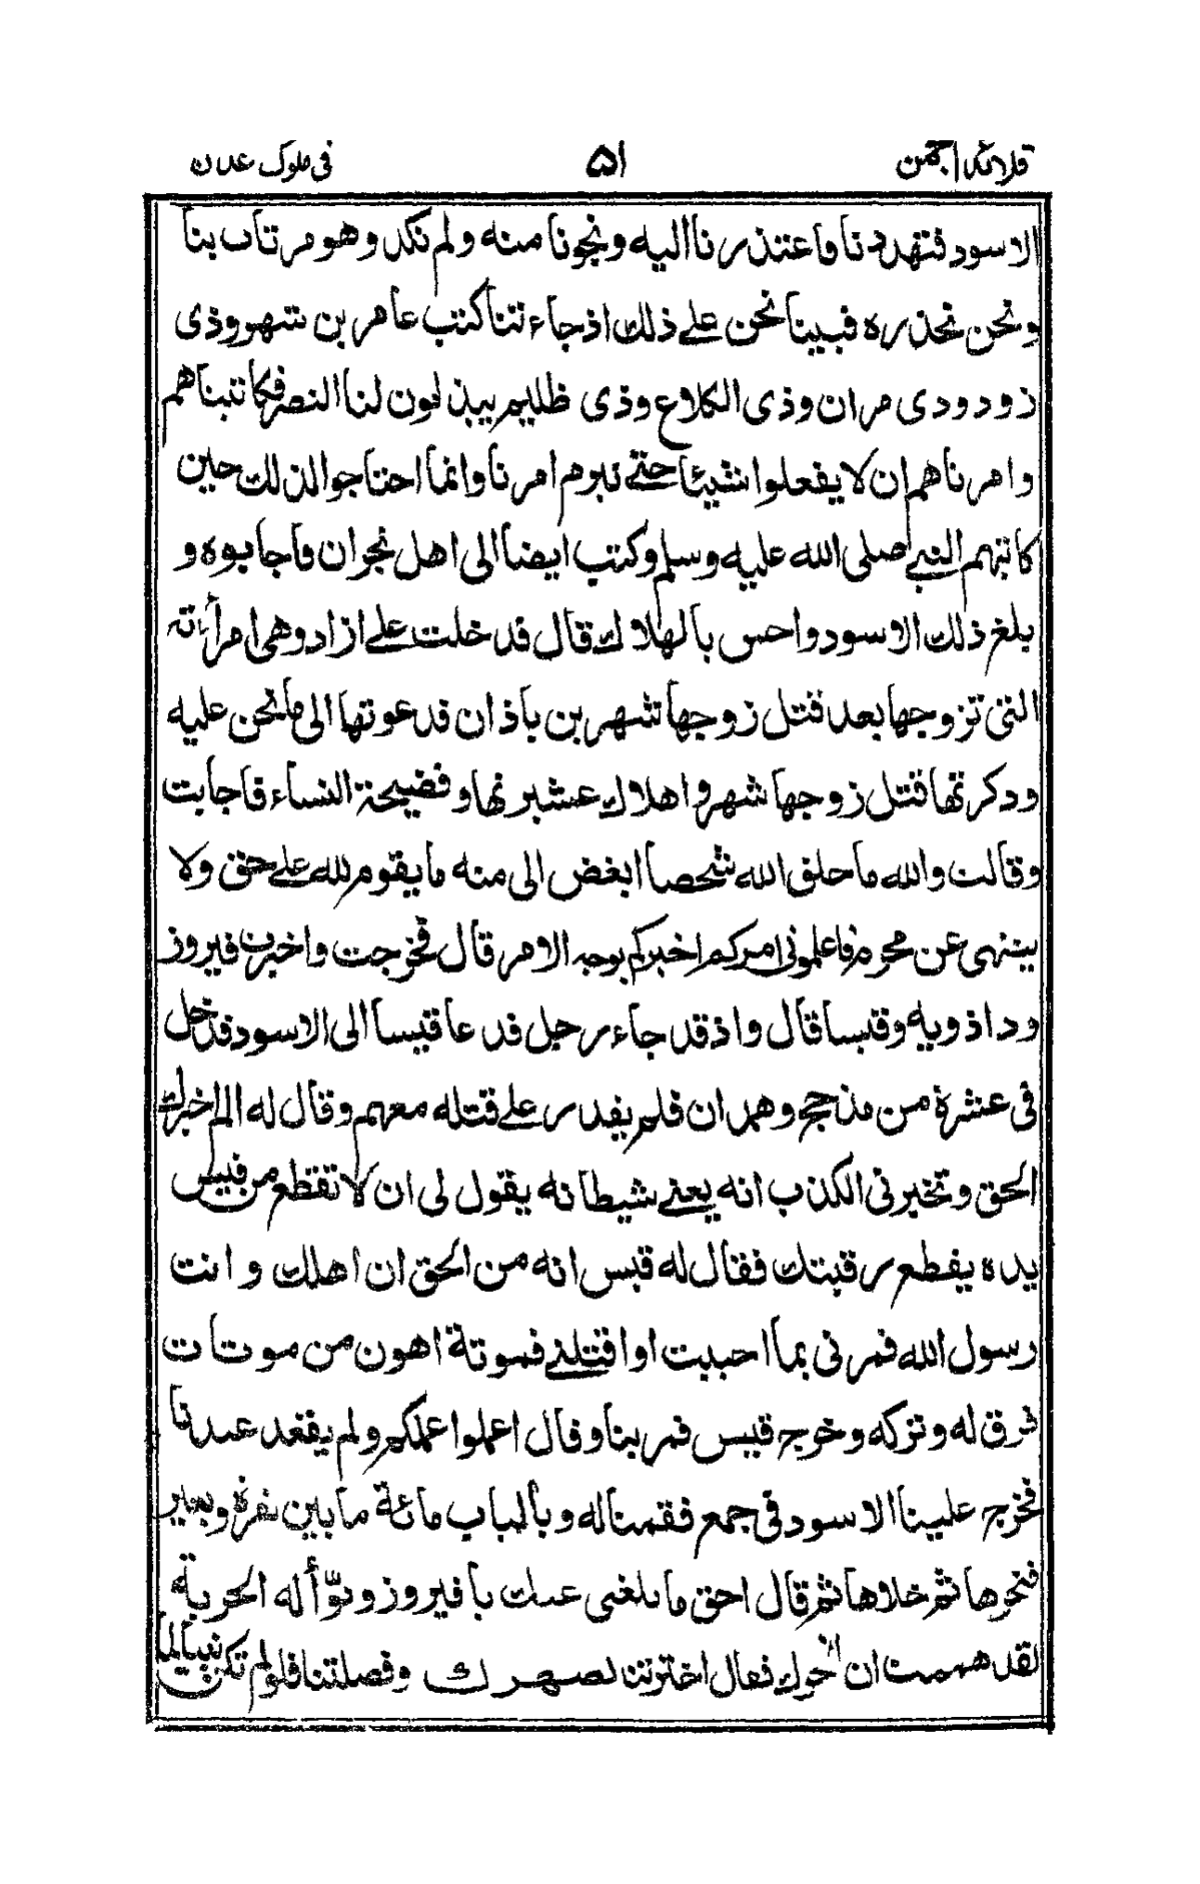 قلائد الجمن ٥١ في ملوك عدن
الاسود فتهددنا واعتذرنا اليه ونجونا منه ولم نكد وهو مرتاب بنا
ونحن نحذره فبينا نحن على ذلك اذ جاءتنا كتب عامر بن شهر وذى
زود ودى مران وذى الكلاع وذى ظليم يبذلون لنا النصر فكاتبناهم
وامرناهم ان لا يفعلوا شيئا حتے نبرم امرنا وانما احتاجوا لذلك حين
كاتبهم النبے صلى الله عليه وسلم وكتب ايضا الى اهل نجران فاجابوه و
بلغ ذلك الاسود واحس بالهلاك قال فدخلت علے ازاد وهى امرأته
التى تزوجها بعد قتل زوجها شهر بن باذان فدعوتها الى ما نحن عليه
ودكرتها قتل زوجها شهر و اهلاك عشيرتها وفضيحة النساء فاجابت
وقالت والله ما خلق الله شخصا ابغض الى منه ما يقوم لله علے حق ولا
ينتهى عن محرم فاعلمونى امركم اخبركم بوجه الامر قال فخرجت واخبرت فيروز
وداذويه وقيسا قال واذ قد جاء رجل فدعا قيسا الى الاسود فدخل
فى عشرة من مذحج وهمدان فلم يقدر علے قتله معهم وقال له الم اخبرك
الحق وتخبرنى الكذب انه يعنے شيطانه يقول لى ان لا تقطع من قيس
يده يقطع رقبتك فقال له قيس انه من الحق ان اهلك و انت
رسول الله فمرنى بما احببت او اقتلنے فموتة اهون من موتات
فرق له وتركه وخرج قيس فمر بنا وقال اعملوا عملكم ولم يقعد عندنا
فخرج علينا الاسود فى جمع فقمنا له وبالباب مائة ما بين بقرة وبعير
فنحرها ثم خلاها ثم قال احق ما بلغنى عنك يا فيروز وبوّأ له الحربة
لقد هممت ان انحرك فقال اخترتنا لصهرك وفضلتنا فلو لم تكن نبيا لما